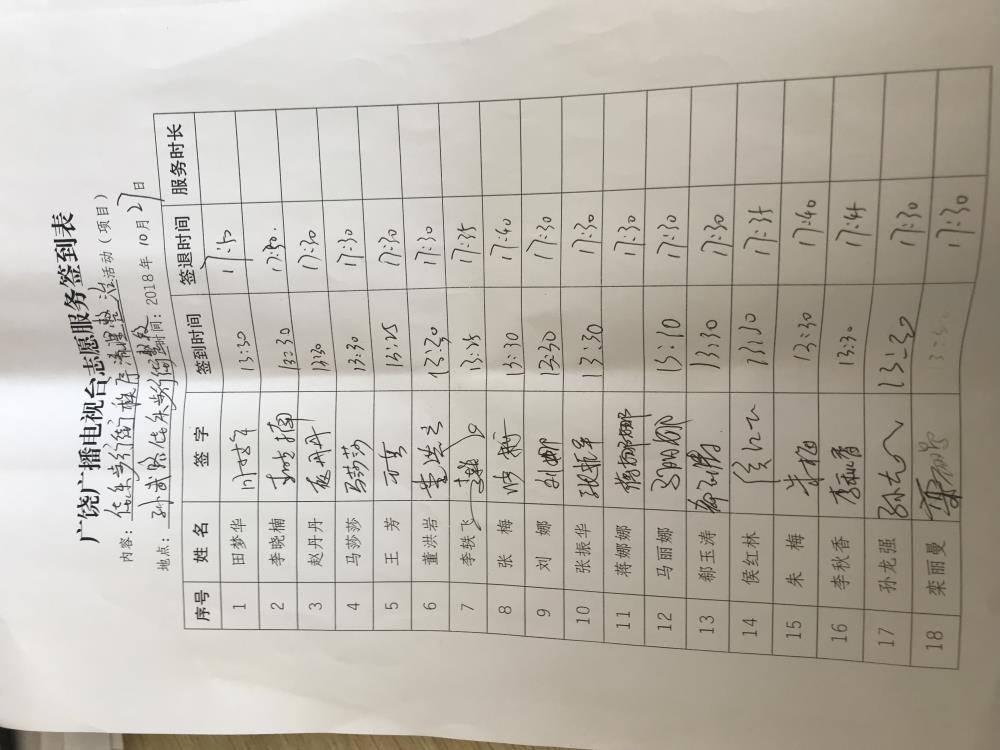 广饶广播电视台志愿服务签到表
内容：乐安街 秩序清理整治活动（项目）
地点：孙武路 乐安街 时间：2018年10月27日
序号 姓名 签字 签到时间 签退时间 服务时长
1 田梦华 田梦华 13:30 17:30
2 李晓楠 李晓楠 13:30 17:30.
3 赵丹丹 赵丹丹 13:30 17:30
4 马莎莎 马莎莎 13:30 17:30
5 王 芳 王芳 13:25 17:30
6 董洪岩 董洪岩 13:30 17:30
7 李轶飞 13:25 17:35
8 张 梅 张梅 13:30 17:40
9 刘 娜 刘娜 13:30 17:30
10 张振华 张振华 13:30 17:30
11 蒋娜娜 蒋娜娜 17:30
12 马丽娜 马丽娜 13:10 17:30
13 郗玉涛 郗玉涛 13:30 17:30
14 侯红林 13:10 17:35
15 朱 梅 朱梅 13:30 17:40
16 李秋香 李秋香 13:30 17:45
17 孙龙强 13:30 17:30
18 栾丽曼 栾丽曼 13:30 17:30